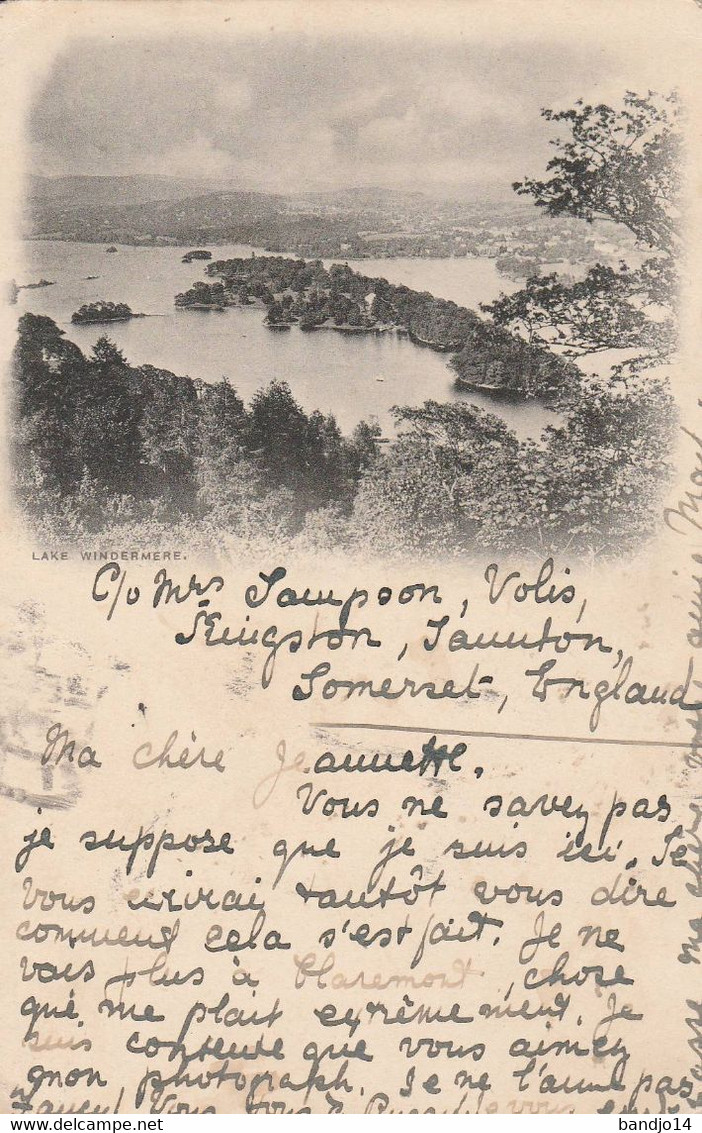 LAKE WINDERMERE.
C/o Mrs Sampson, Volis,
Kingston, Taunton,
Somerset, England
Ma chère Jeannette,
Vous ne savez pas
je suppose que je suis ici. Je
vous écrirai tantôt vous dire
comment cela s'est fait. Je ne
vais plus à Claremont, chose
que me plait extrêmement. Je
suis contente que vous aimez
mon photograph. Je ne l'aime pas
delcampe.net
bandjo14